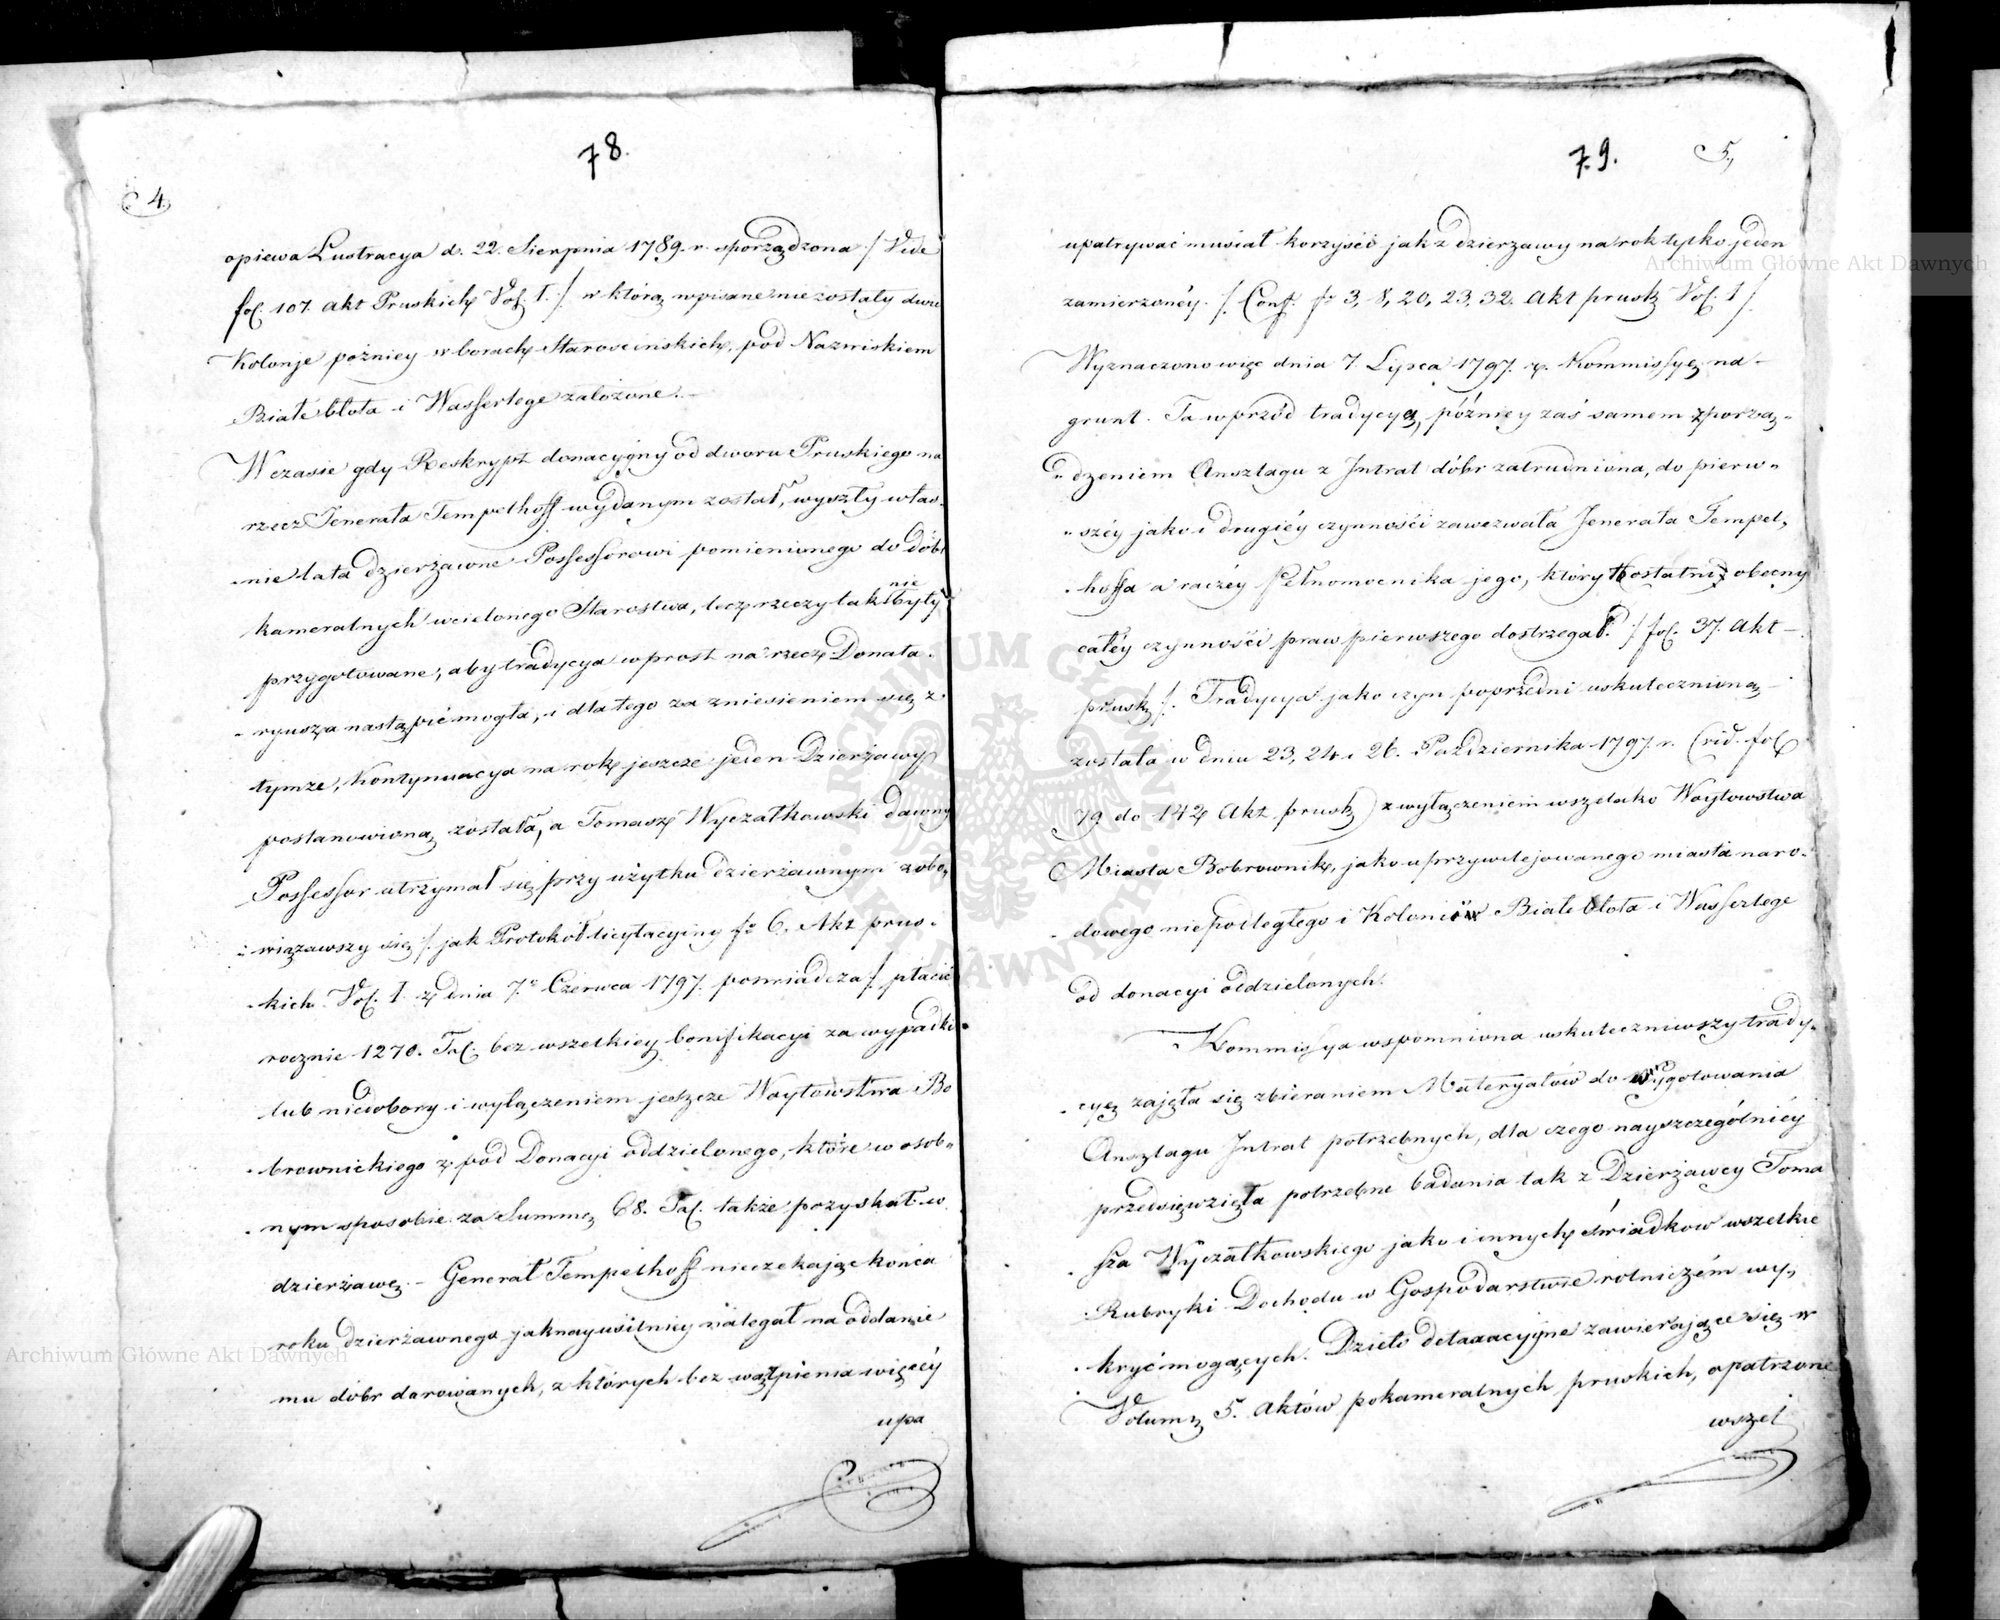 78.
4.
opiewa Lustracya d. 22. Sierpnia 1789. r. sporządzona /: Vide
fol. 107. Akt Pruskich Vol. I. :/ w którą wpisane nie zostały dwie
Kolonje poźniey w borach Starościńskich, pod Nazwiskiem
Białe błota i Wasserlege założone.
W czasie gdy Reskrypt donacyjny od dworu Pruskiego na
rzecz Jenerała Tempelhoff wydanym został, wyszły właś-
-nie lata dzierżawne Possessorowi pomienionego do dóbr
kameralnych wcielonego Starostwa, lecz rzeczy tak nie były
przygotowane, aby tradycya wprost na rzecz Donata-
-ryusza nastąpić mogła, i dla tego za zniesieniem się z
tymże, Kontynuacya na rok jeszcze jeden Dzierżawy
postanowioną została, a Tomasz Wyczałkowski dawny
Possessor utrzymał się przy użytku dzierżawnym zobo-
-wiązawszy się /: jak Protokół licytacyiny fo 6. Akt prus-
-kich Vol. I. z dnia 7. Czerwca 1797. poswiadcza :/ płacić
rocznie 1270. Tal. bez wszelkiey bonifikacyi za wypadki
lub niedobory i wyłączeniem jeszcze Woytowstwa Bo
-brownickiego z pod Donacyi oddzielonego, które w osob-
-nym sposobie za Summę 68. Tal. także pozyskał w
dzierżawę. – Generał Tempelhoff nieczekając końca
roku dzierżawnego jaknayusilniey nalegał na oddanie
mu dóbr darowanych, z których bez wątpienia więcéy
upa
79.
5.
upatrywać musiał korzyści jak z dzierzawy na rok tylko jeden
zamierzonéy. /: Conf. fo 3, 8, 20, 23, 32. Akt prusk Vol. I :/
Wyznaczono więc dnia 7 Lipca 1797. r. Kommissyę na-
grunt. Ta wprzód tradycyą, późniéy zaś samem sporzą-
-dzeniem Anszlagu z Intrat dóbr zatrudniona, do pierw-
-széy jako i drugiéy czynności zawezwała Jenerała Tempel-
-hoffa a raczéy Pełnomocnika jego, który ostatni obecny
całéy czynności praw pierwszego dostrzegał. /: fol. 37. Akt-
prusk :/. Tradycya jako czyn poprzedni uskutecznioną-
została w dniu 23, 24 i 26. Października 1797. r. (vid. fol
79 do 142 Akt prusk) z wyłączeniem wszelako Woytowstwa
Miasta Bobrownik, jako uprzywilejowanego miasta naro-
-dowego niepodległego i Koloniów Białe błota i Wasserlege
od donacyi oddzielonych.
Kommissya wspomniona uskuteczniwszy trady-
-cyę zajęła się zbieraniem Materyałów do wygotowania
Anszlagu Intrat potrzebnych, dla czego nayszczególniéy
przedsięwzięła potrzebne badania tak z Dzierżawcy Toma
-sza Wyczałkowskiego jako i innych świadków wszelkie
Rubryki Dochodu w Gospodarstwie rolniczém wy-
-kryć mogących. Dzieło detaxacyjne zawierające się w
Volum 5. Aktów pokameralnych pruskich, opatrzone
wszel
Archiwum Główne Akt Dawnych
Archiwum Główne Akt Dawnych
ARCHIWUM GŁÓWNE AKT DAWNYCH